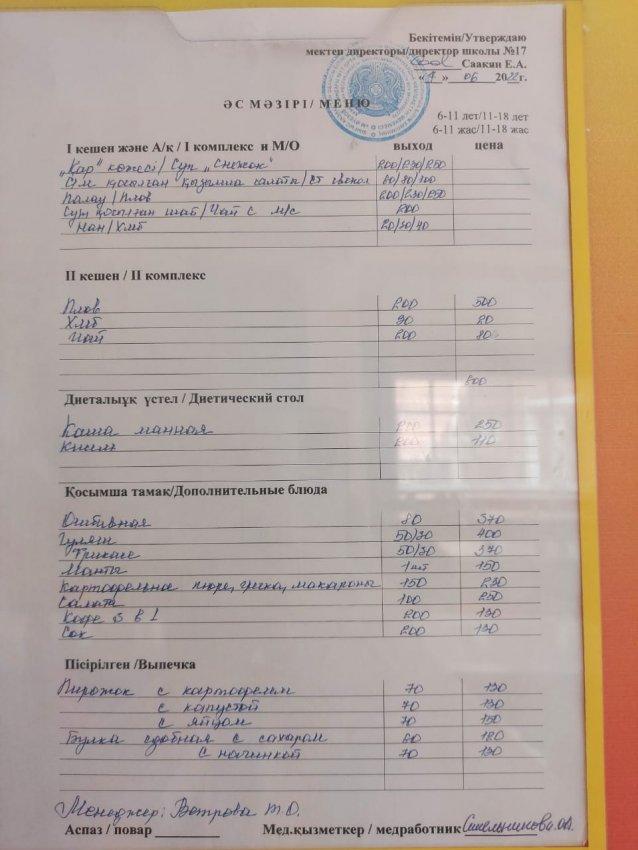 Бекітемін/Утверждаю
мектеп директоры/директор школы №17
Саакян Е.А.
06 2022г.
ӘС МӘЗІРІ/ МЕНЮ
6-11 лет/11-18 лет
6-11 жас/11-18 жас
І кешен және А/қ / І комплекс и М/О выход цена
„Қар" көжесі / Суп „Снежок" 200/230/250
қосылған салаты/ 60/80/100
Палау/Плов 200/230/250
Сүт қосылған шай/Чай с м/с 200
Нан/Хлеб 20/30/40
ІІ кешен / ІІ комплекс
Плов 200 500
Хлеб 30 20
Чай 200 80
600
Диеталыұқ үстел / Диетический стол
Каша манная 200 250
Кисель 200 110
Қосымша тамақ/Дополнительные блюда
Отбивная 80 370
Гуляш 50/30 400
Фрикасе 50/30 370
Манты 1 шт 150
Картофельное пюре, гречка, макароны 150 230
Салаты 100 250
Кофе 3 в 1 200 130
Сок 200 130
Пісірілген /Выпечка
Пирожок с картофелем 70 130
с капустой 70 130
с яйцом 70 150
Булка сдобная с сахаром 60 180
с начинкой 70 130
Менеджер: Ветрова Т.О.
Аспаз / повар Мед.қызметкер / медработник Синельникова О.А.